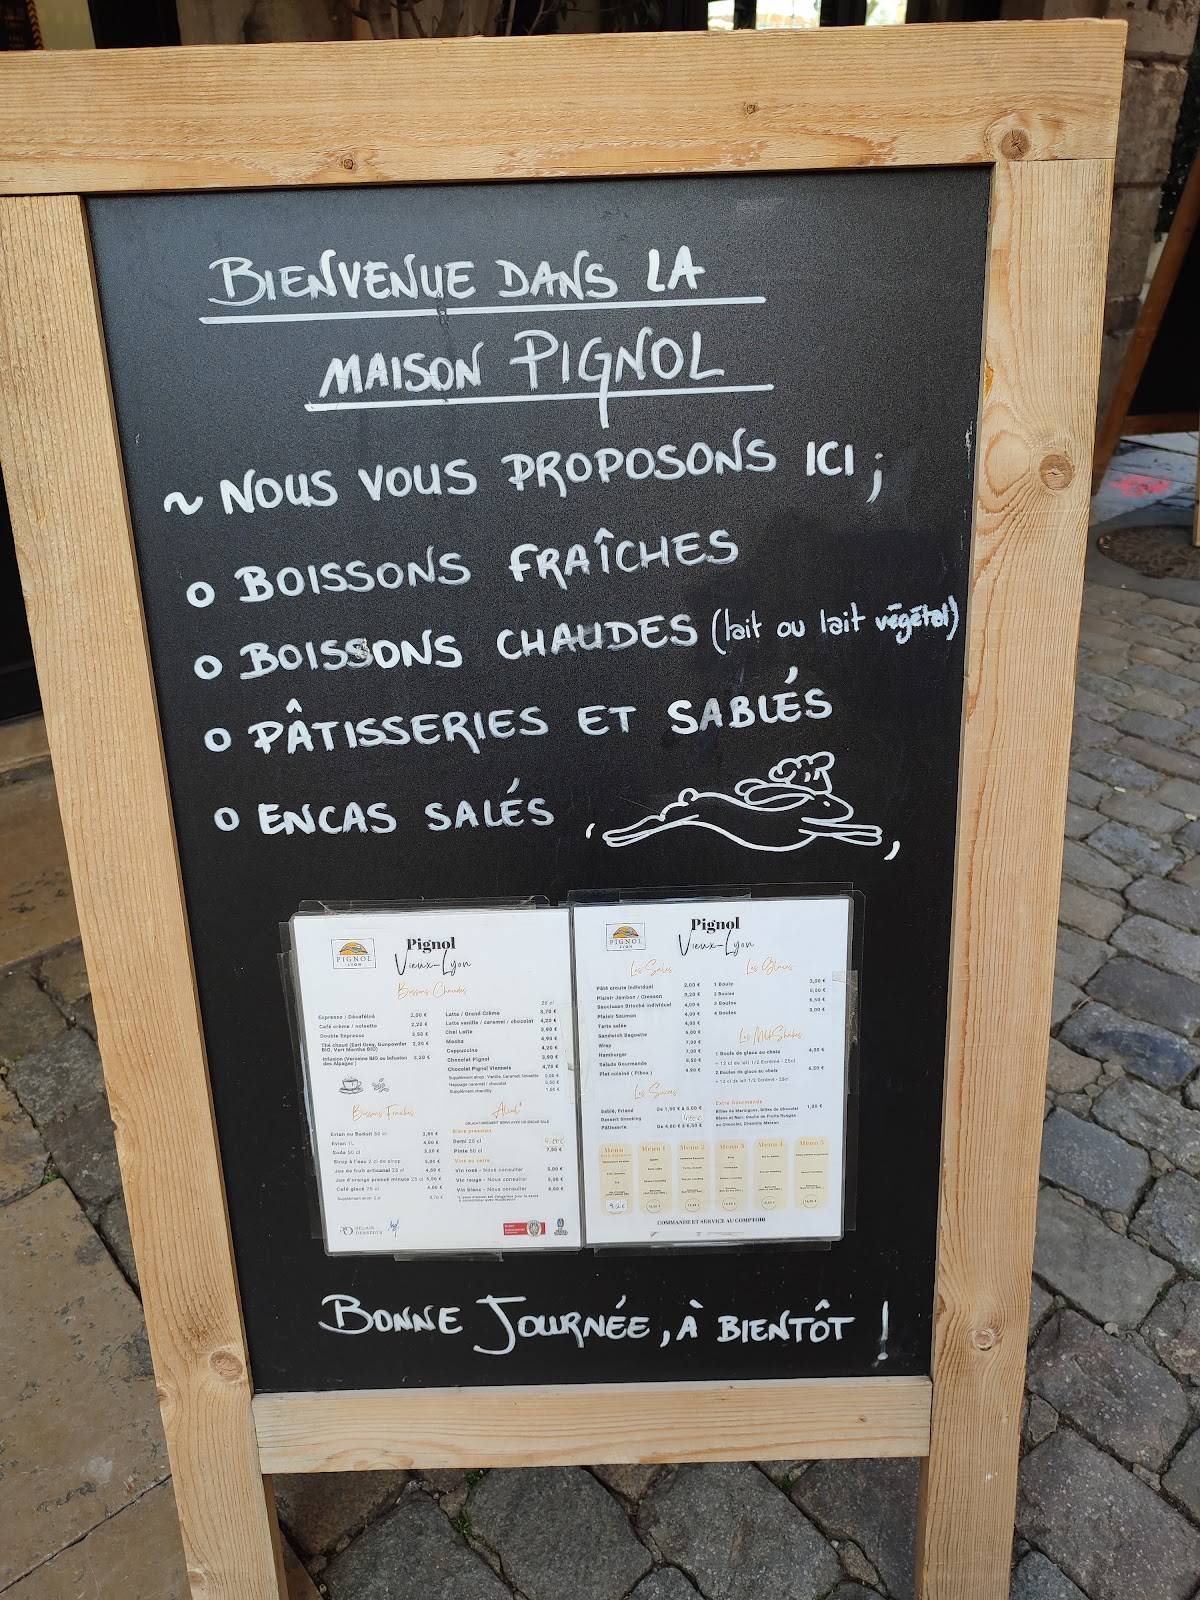 BIENVENUE DANS LA
MAISON PIGNOL
~ NOUS VOUS PROPOSONS ICI ;
o BOISSONS FRAÎCHES
o BOISSONS CHAUDES (lait ou lait végétal)
o PÂTISSERIES ET SABLÉS
o ENCAS SALÉS
PIGNOL
LYON
Pignol
Vieux-Lyon
Boissons Chaudes
Expresso / Décaféiné 2,00 €
Café crème / noisette 2,20 €
Double Expresso 3,50 €
Thé chaud (Earl Grey, Gunpowder
BIO, Vert Menthe BIO)
Infusion (Verveine BIO ou Infusion
des Alpages) 3,20 €
25 cl
Latte / Grand Crème 3,70 €
Latte vanille / caramel / chocolat 4,20 €
Chaï Latte 3,90 €
Mocha 4,90 €
Cappuccino 4,20 €
Chocolat Pignol 3,90 €
Chocolat Pignol Viennois 4,70 €
Boissons Fraîches
Evian ou Badoit 50 cl
Evian 1L 4,00 €
Soda 50 cl
Sirop à l'eau 2 cl de sirop
Jus de fruit artisanal 25 cl 4,50 €
Jus d'orange pressé minute 25 cl
Café glacé 25 cl
Alcool*
Bière pression
Demi 25 cl 4.00€
Pinte 50 cl 7,00 €
Vins au verre
Vin rosé - Nous consulter 5,00 €
Vin rouge - Nous consulter 5,00 €
Vin blanc - Nous consulter 5,00 €
RELAIS
DESSERTS
PIGNOL
LYON
Pignol
Vieux-Lyon
Les Salés
Pâté croute individuel 2,00 €
Plaisir Jambon / Cresson 3,20 €
Saucisson Brioché individuel 4,00 €
Plaisir Saumon 4,00 €
Tarte salée 4,00 €
Sandwich Baguette 6,00 €
Wrap 7,00 €
Hamburger 7,00 €
Salade Gourmande 8,50 €
Plat cuisiné ( Pibou ) 4,90 €
Les Sucrés
Sablé, Friand De 1,90 € à 5,00 €
Dessert Snacking
Pâtisserie De 4,60 € à 6,50 €
Les Glaces
1 Boule 3,00 €
2 Boules 5,00 €
3 Boules 6,50 €
4 Boules
Les MilkShakes
1 Boule de glace au choix 4,00 €
+ 12 cl de lait 1/2 Ecrémé - 25cl
2 Boules de glace au choix 6,50 €
+ 12 cl de lait 1/2 Ecrémé - 25cl
Extra Gourmands
Menu
Menu 1
Menu 2
Menu 3
Menu 4
Menu 5
COMMANDE ET SERVICE AU COMPTOIR
BONNE JOURNÉE, À BIENTÔT !